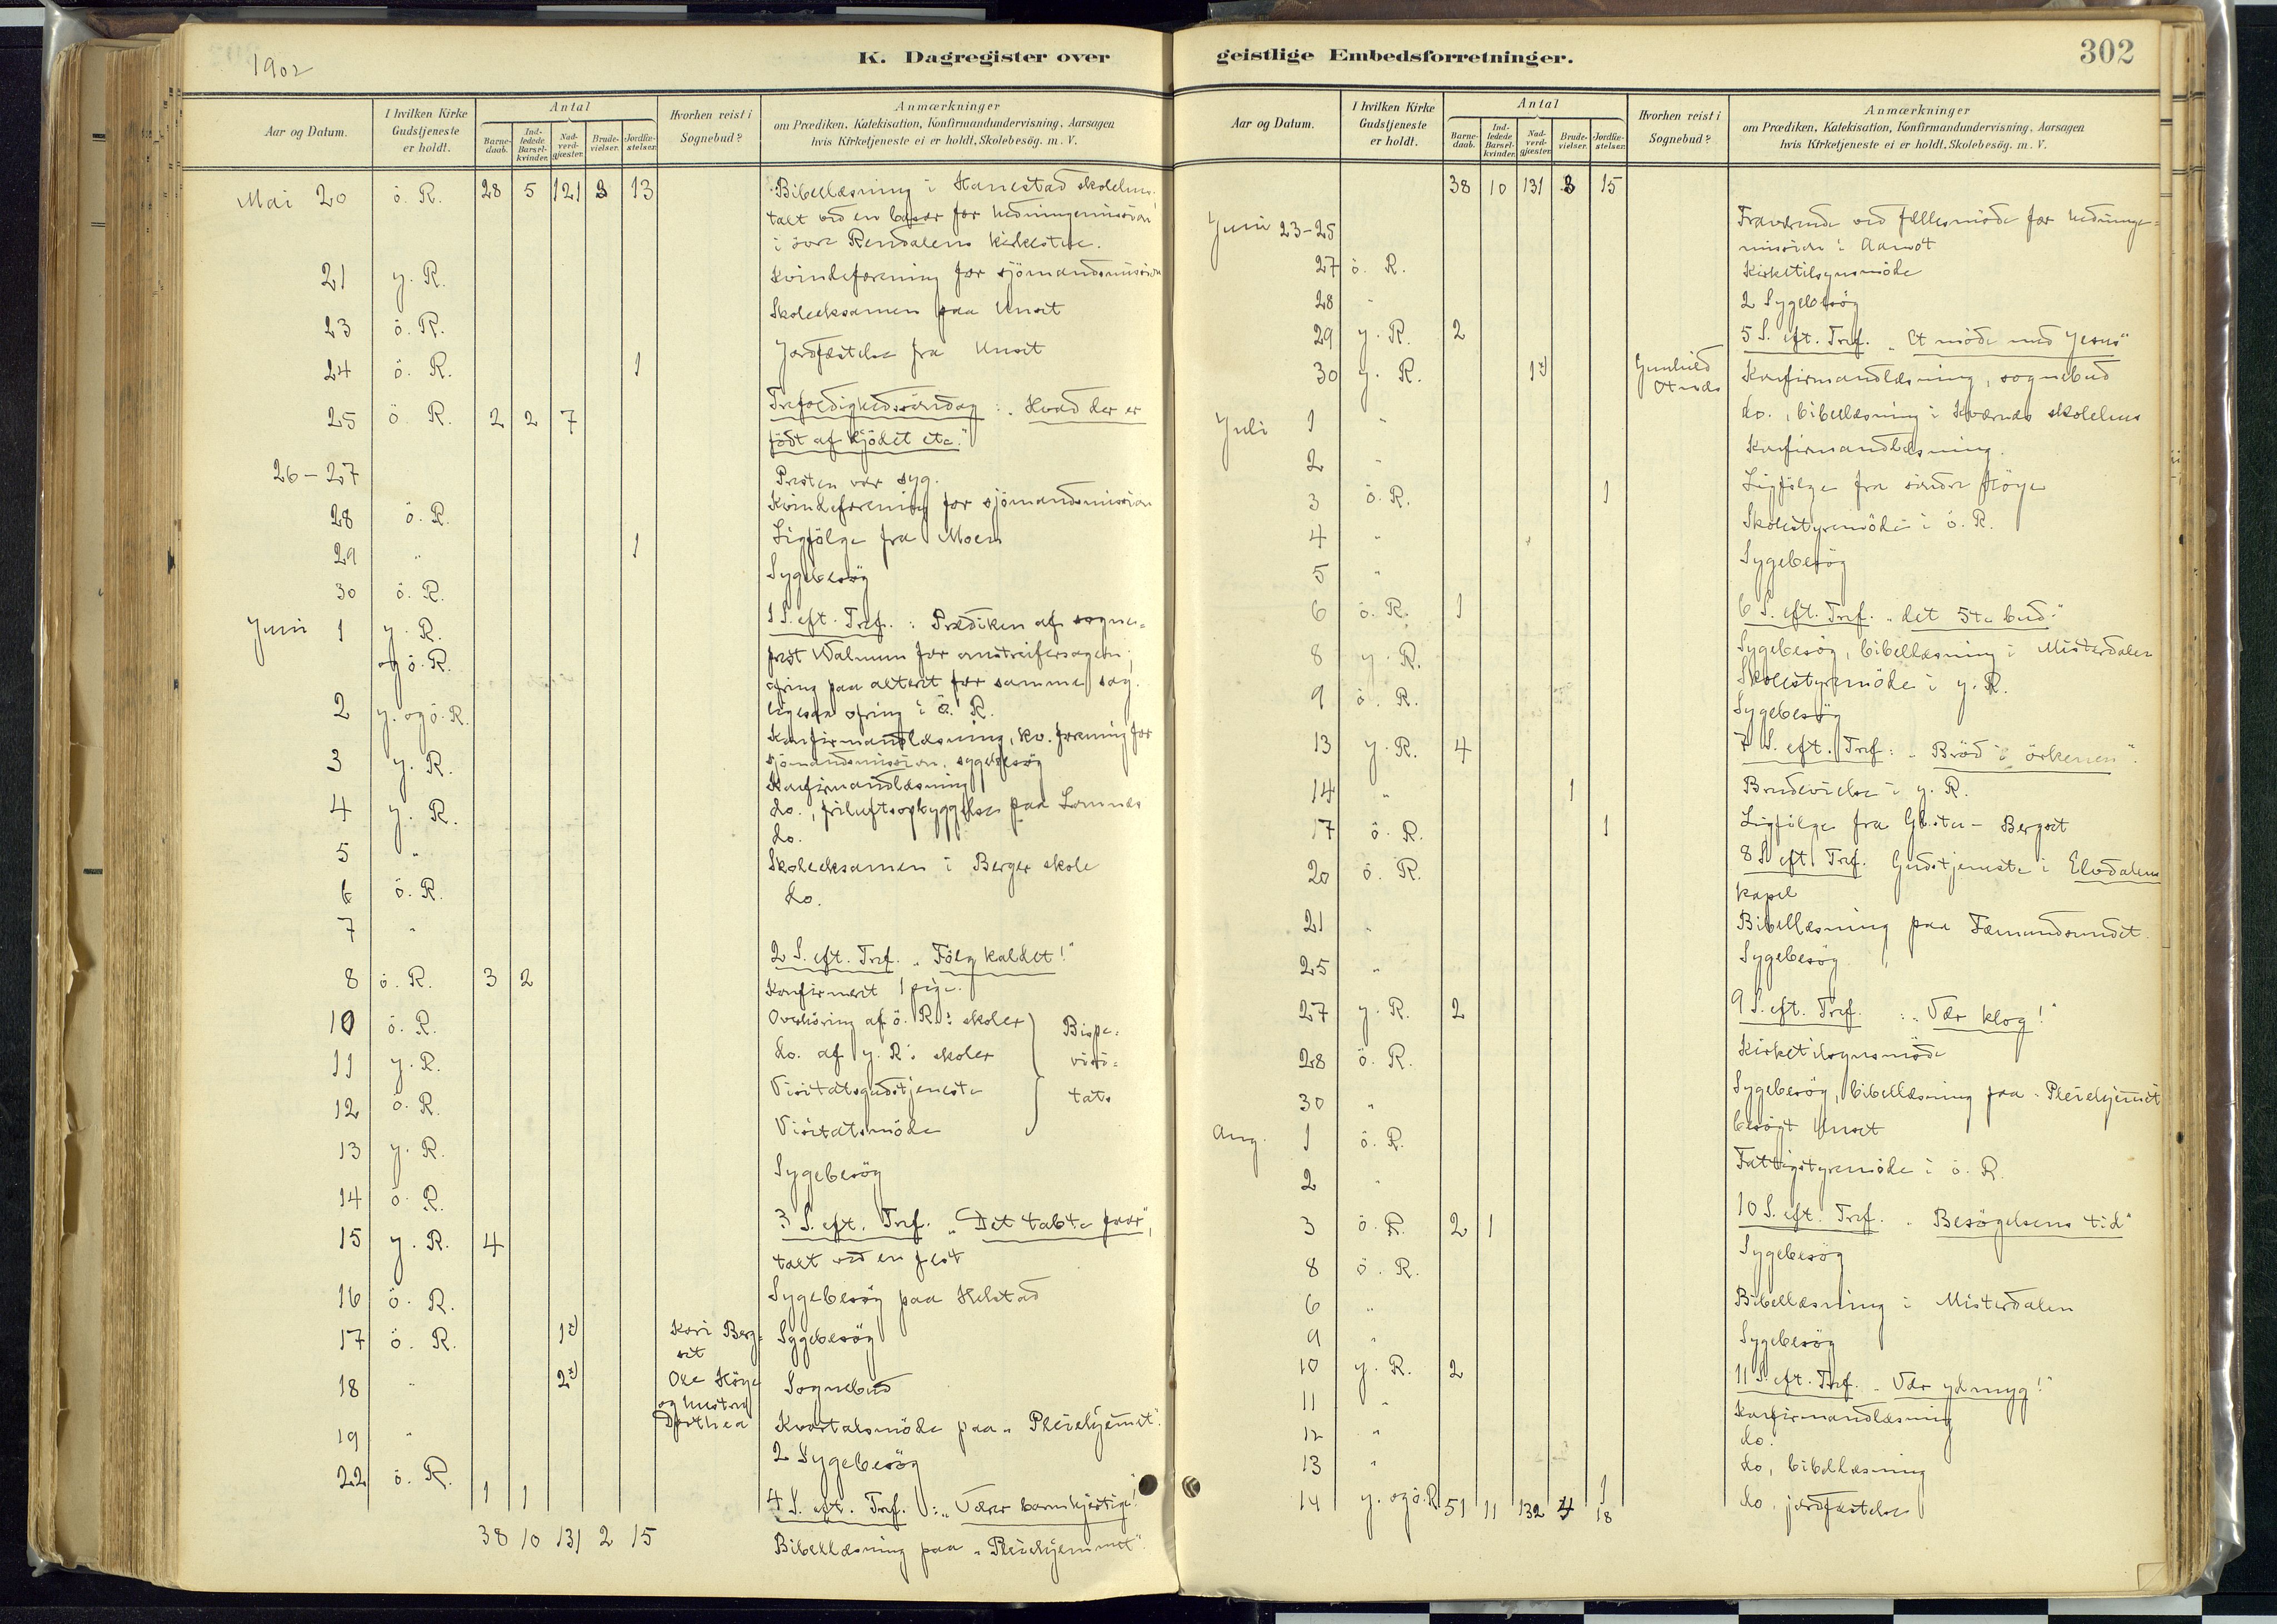 1902
K. Dagregister over
Aar og Datum.
I hvilken Kirke Gudstjeneste er holdt.
Antal
Barne-daab.
Ind-ledede Barsel-kvinder.
Nad-verd-gjæster.
Brude-vielser.
Jordfæ-stelser.
Hvorhen reist i Sognebud?
Anmærkninger
om Prædiken, Katekisation, Konfirmandundervisning, Aarsagen
hvis Kirketjeneste ei er holdt, Skolebesög. m. V.
Mai 20 ö. R. 28 5 121 3 13 Bibellæsning i Hanestad skolehus.
talt ved en basar for hedningemission
i övre Rendalens kirkestue.
21 y. R. Kvindeforening for sjömandsmission
23 ö. R. Skoleeksamen paa Unset
24 ö. R. 1 Jordfæstelse fra Unset
25 ö. R. 2 2 7 Trefoldighedssöndag: "Hvad der er
födt af kjödet etc."
26-27 Presten var syg.
28 ö. R. Kvindeforening for sjömandsmission
29 " 1 Ligfölge fra Moen
30 ö. R. Sygebesög
Juni 1 y. R. 1 S. eft. Tref.: Prædiken af sogne=
og ö. R. prest Walnum for omstreifersagen;
ofring paa alteret for samme sag.
ligesaa ofring i ö. R.
2 y. og ö. R. Konfirmandlæsning, kv. forening for
sjömandsmission, sygebesög
3 y. R. Konfirmandlæsning
4 y. R. do., friluftsopbyggelse paa Lomnes
5 " do.
6 ö. R. Skoleeksamen i Berger skole
7 " do.
8 ö. R. 3 2 2 S. eft. Tref. "Fölg kaldet!"
Konfirmeret 1 pige.
10 ö. R. Overhöring af ö. R.s skoler
11 y. R. do. af y. R.s skoler
12 ö. R. Visitatsgudstjeneste
13 y. R. Visitatsmöde
Bispe=
visi=
tats
14 ö. R. Sygebesög
15 y. R. 4 3 S. eft. Tref. "Det tabte faar",
talt ved en fest
16 ö. R. Sygebesög paa Helstad
17 ö. R. 1x) Kari Berg=
set Sygebesög
18 " 2x) Ole Höye
og hustru
Dorthea Sognebud
19 " Kvartalsmöde paa "Pleiehjemmet".
22 ö. R. 2 Sygebesög
1 1 4 S. eft. Tref.: "Vær barmhjertige!"
38 10 131 2 15 Bibellæsning paa "Pleiehjemmet".
geistlige Embedsforretninger.
302
Aar og Datum.
I hvilken Kirke Gudstjeneste er holdt.
Antal
Barne-daab.
Ind-ledede Barsel-kvinder.
Nad-verd-gjæster.
Brude-vielser.
Jordfæ-stelser.
Hvorhen reist i Sognebud?
Anmærkninger
om Prædiken, Katekisation, Konfirmandundervisning, Aarsagen
hvis Kirketjeneste ei er holdt, Skolebesög. m. V.
38 10 131 3 15
Juni 23-25 Fraværende ved fællesmöde for hedninge=
mission i Aamot
27 ö. R. Kirketilsynsmöde
28 " 2 Sygebesög
29 y. R. 2 5 S. eft. Tref. "Et möde med Jesus"
30 y. R. 1x) Gunhild
Otnes Konfirmandlæsning, sognebud
Juli 1 " do., bibellæsning i Kværnes skolehus
2 " Konfirmandlæsning.
3 ö. R. 1 Ligfölge fra söndre Höye
4 " Skolestyremöde i ö. R.
5 " Sygebesög
6 ö. R. 1 6 S. eft. Tref. "det 5te bud."
8 y. R. Sygebesög, bibellæsning i Misterdalen
9 ö. R. Skolestyremöde i y. R.
Sygebesög
13 y. R. 4 7 S. eft. Tref.: "Bröd i örkenen".
14 " 1 Brudevielse i y. R.
17 ö. R. 1 Ligfölge fra - Bergset
20 ö. R. 8 S. eft. Tref. Gudstjeneste i Elvdalens
kapel
21 " Bibellæsning paa Fæmundsundet.
25 " Sygebesög
27 y. R. 2 9 S. eft. Tref.: "Vær klog!"
28 ö. R. Kirketilsynsmöde
30 " Sygebesög, bibellæsning paa "Pleiehjemmet
Aug. 1 ö. R. besögt Unset
2 " Fattigstyremöde i ö. R.
3 ö. R. 2 1 10 S. eft. Tref. "Besögelsens tid"
8 ö. R. Sygebesög
6 " Bibellæsning i Misterdalen
9 " Sygebesög
10 y. R. 2 11 S. eft. Tref. "Vær ydmyg!"
11 " Konfirmandlæsning
12 " do.
13 " do, bibellæsning
14 y. og ö. R. 1 do, jordfæstelse
51 11 132 4 18